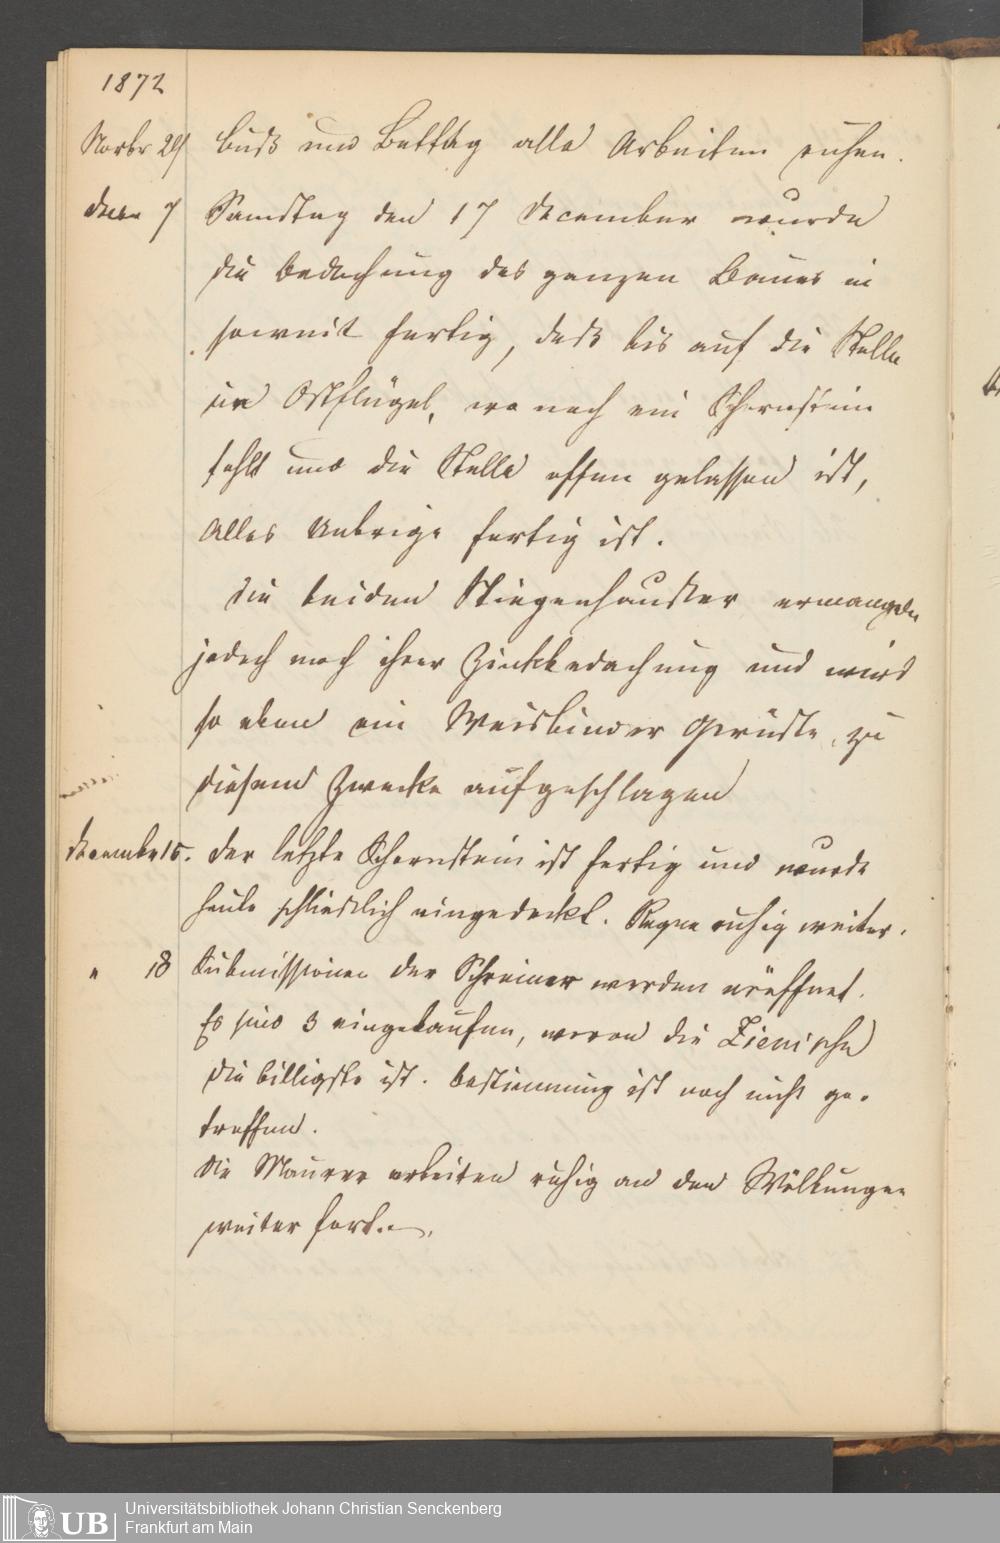 1872
Novbr 29 Buß und Bettag alle Arbeiten ruhen.
Decbr 7 Samstag den 17 December wurde
die Bedachung des ganzen Baues in
soweit fertig, daß bis auf die Stelle
im Ostflügel, wo noch ein Schornstein
fehlt und die Stelle offen gelassen ist,
Alles Uebrige fertig ist.
Die beiden Stiegenhäußer ermangeln
jedoch noch ihrer Zinkbedachung und wird
so eben ein Weisbinder Gerüste, zu
diesem Zwecke aufgeschlagen
December 15. Der letzte Schornstein ist fertig und wurde
heute schließlich eingedeckt. Regne ruhig weiter.
" 18 Submissionen der Schreiner werden eröffnet.
Es sind 3 eingelaufen, wovon die
die billigste ist. Bestimmung ist noch nicht ge-
troffen.
Die Maurer arbeiten ruhig an den Wölbungen
weiter fort.
UB
Universitätsbibliothek Johann Christian Senckenberg
Frankfurt am Main